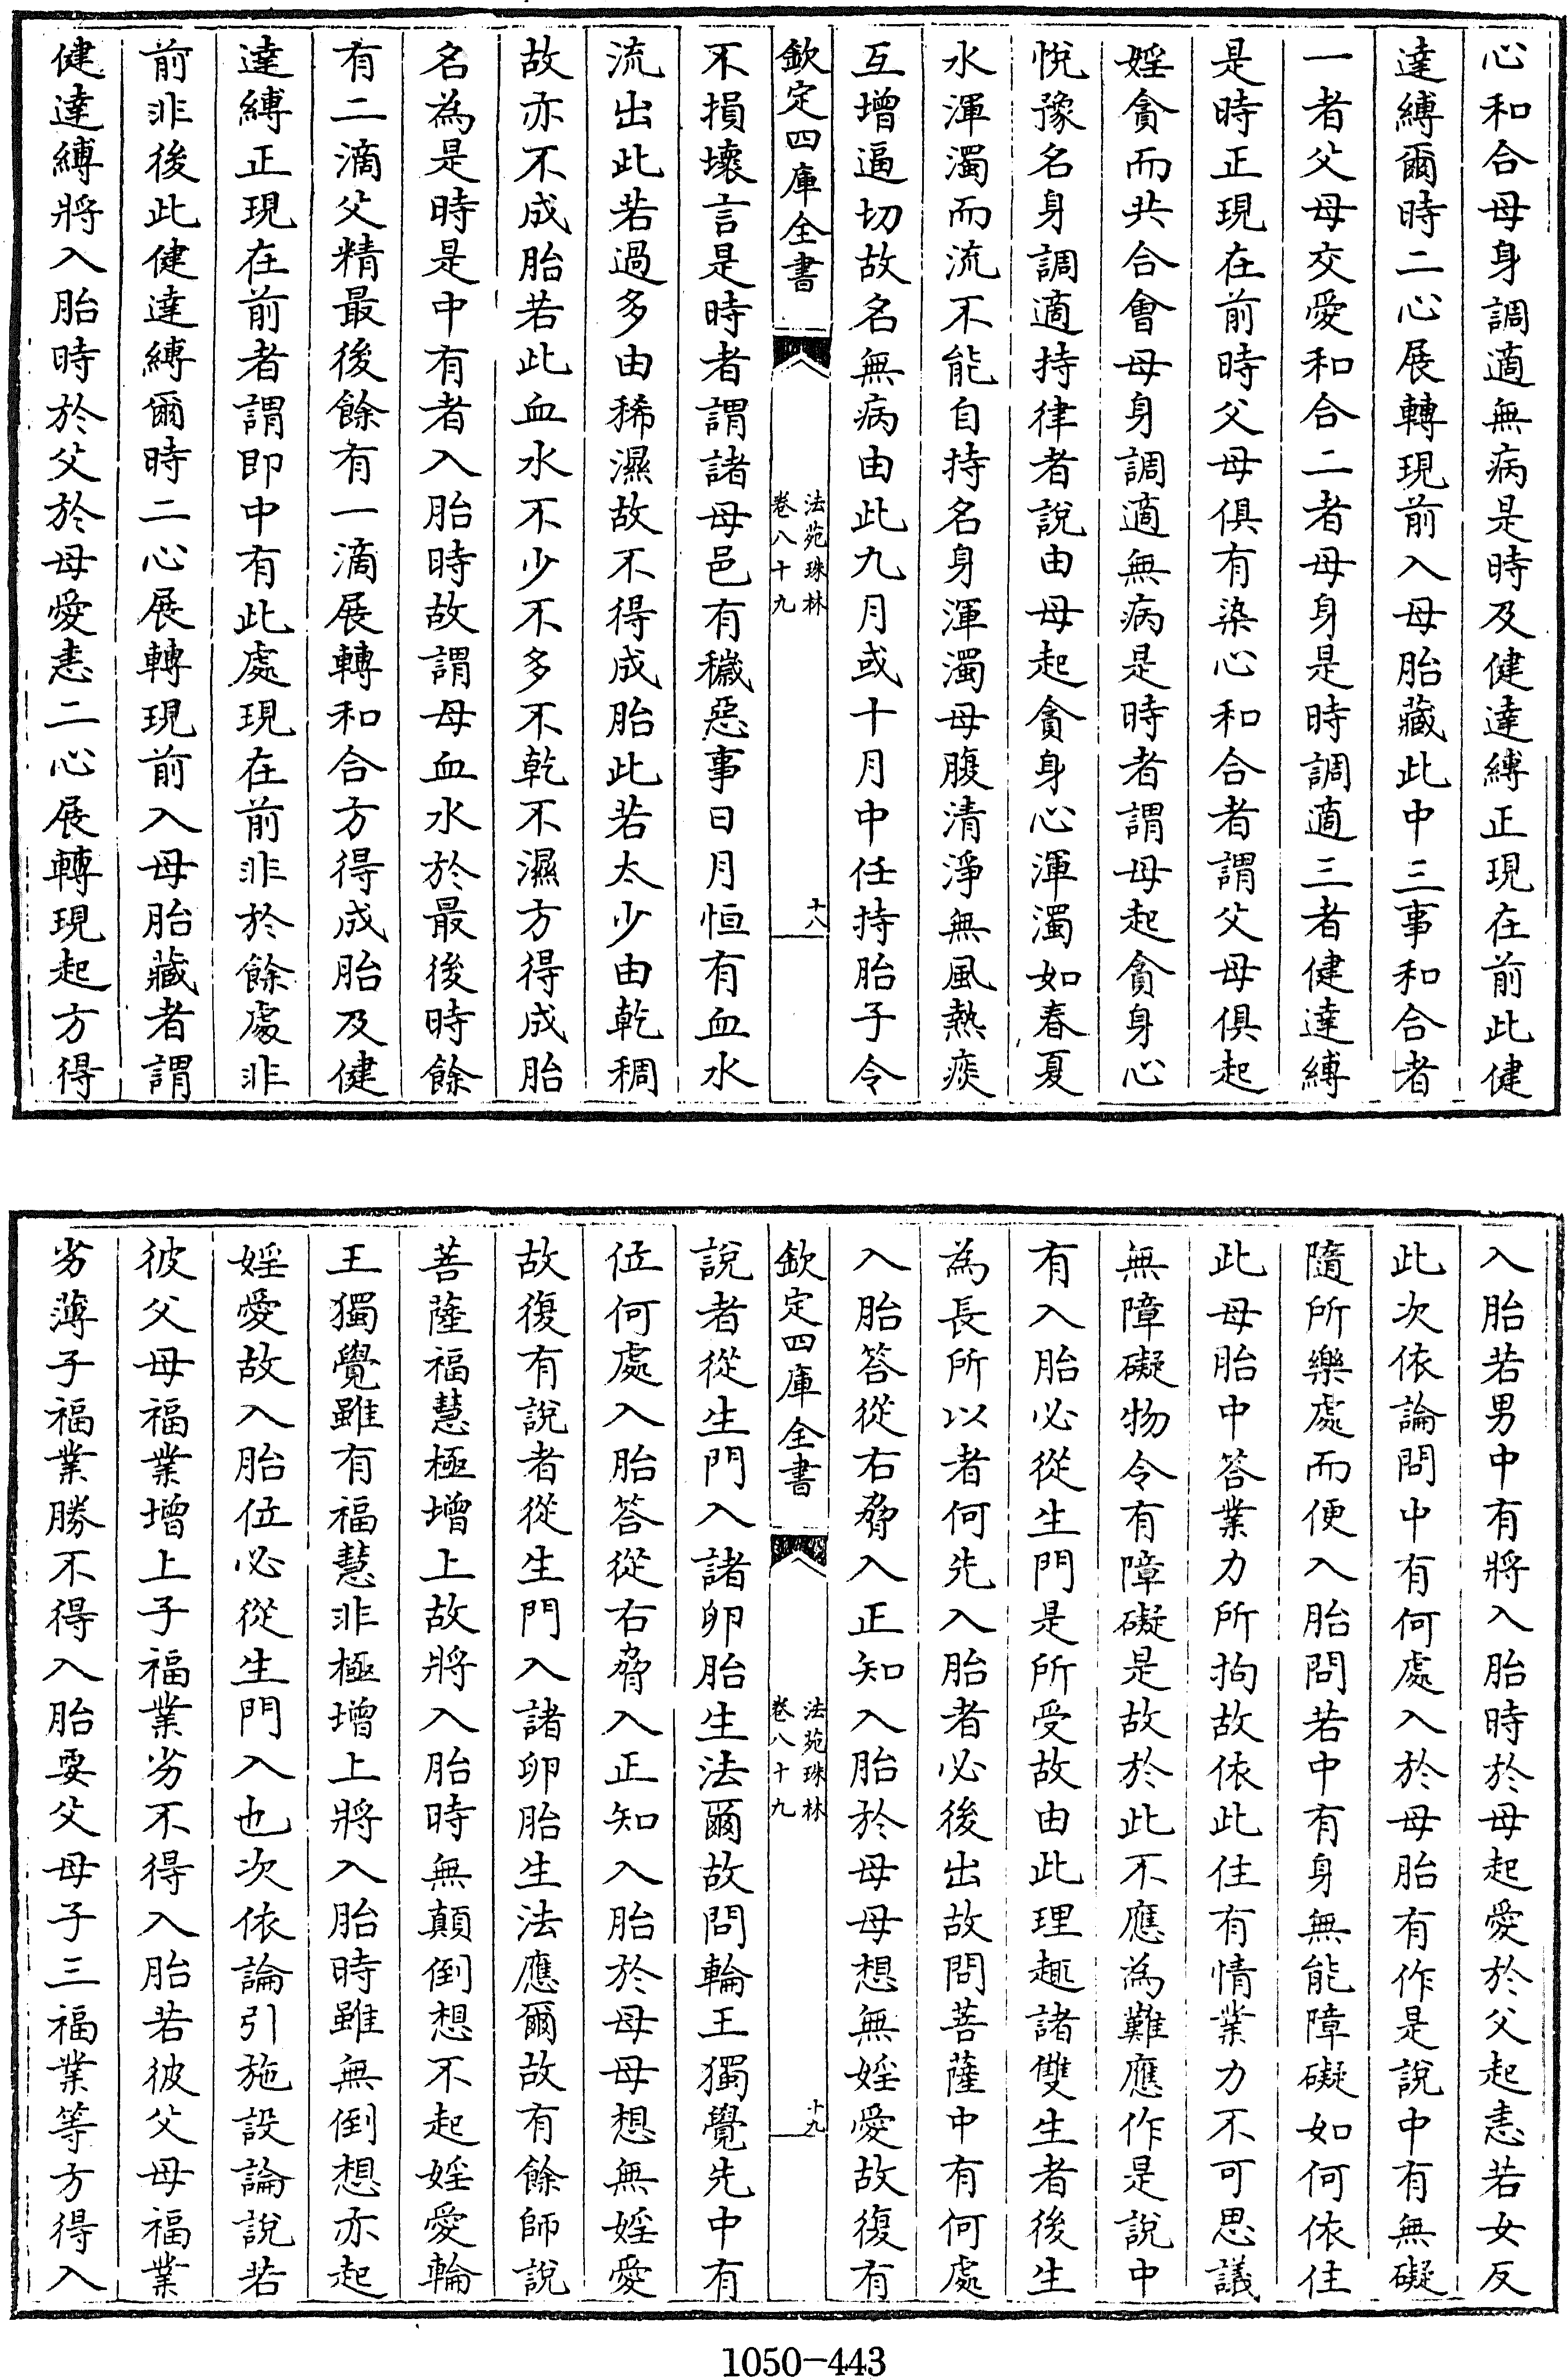 心和合母身調適無病是時及健達縛正現在前此健
達縛爾時二心展轉現前入母胎藏此中三事和合者
一者父母交愛和合二者母身是時調適三者健達縛
是時正現在前時父母俱有染心和合者謂父母俱起
婬貪而共合會母身調適無病是時者謂母起貪身心
悅豫名身調適持律者說由母起貪身心渾濁如春夏
水渾濁而流不能自持名身渾濁母腹清淨無風熱痰
互增逼切故名無病由此九月或十月中任持胎子令
欽定四庫全書
法苑珠林
卷八十九
十八
不損壞言是時者謂諸母邑有穢惡事日月恒有血水
流出此若過多由稀濕故不得成胎此若太少由乾稠
故亦不成胎若此血水不少不多不乾不濕方得成胎
名為是時是中有者入胎時故謂母血水於最後時餘
有二滴父精最後餘有一滴展轉和合方得成胎及健
達縛正現在前者謂即中有此處現在前非於餘處非
前非後此健達縛爾時二心展轉現前入母胎藏者謂
健達縛將入胎時於父於母愛恚二心展轉現起方得
入胎若男中有將入胎時於母起愛於父起恚若女反
此次依論問中有何處入於母胎有作是說中有無礙
隨所樂處而便入胎問若中有身無能障礙如何依住
此母胎中答業力所拘故依此住有情業力不可思議
無障礙物令有障礙是故於此不應為難應作是說中
有入胎必從生門是所受故由此理趣諸雙生者後生
為長所以者何先入胎者必後出故問菩薩中有何處
入胎答從右脅入正知入胎於母母想無婬愛故復有
欽定四庫全書
法苑珠林
卷八十九
十九
說者從生門入諸卵胎生法爾故問輪王獨覺先中有
位何處入胎答從右脅入正知入胎於母母想無婬愛
故復有說者從生門入諸卵胎生法應爾故有餘師說
菩薩福慧極增上故將入胎時無顛倒想不起婬愛輪
王獨覺雖有福慧非極增上將入胎時雖無倒想亦起
婬愛故入胎位必從生門入也次依論引施設論說若
彼父母福業增上子福業劣不得入胎若彼父母福業
劣薄子福業勝不得入胎要父母子三福業等方得入
1050-443